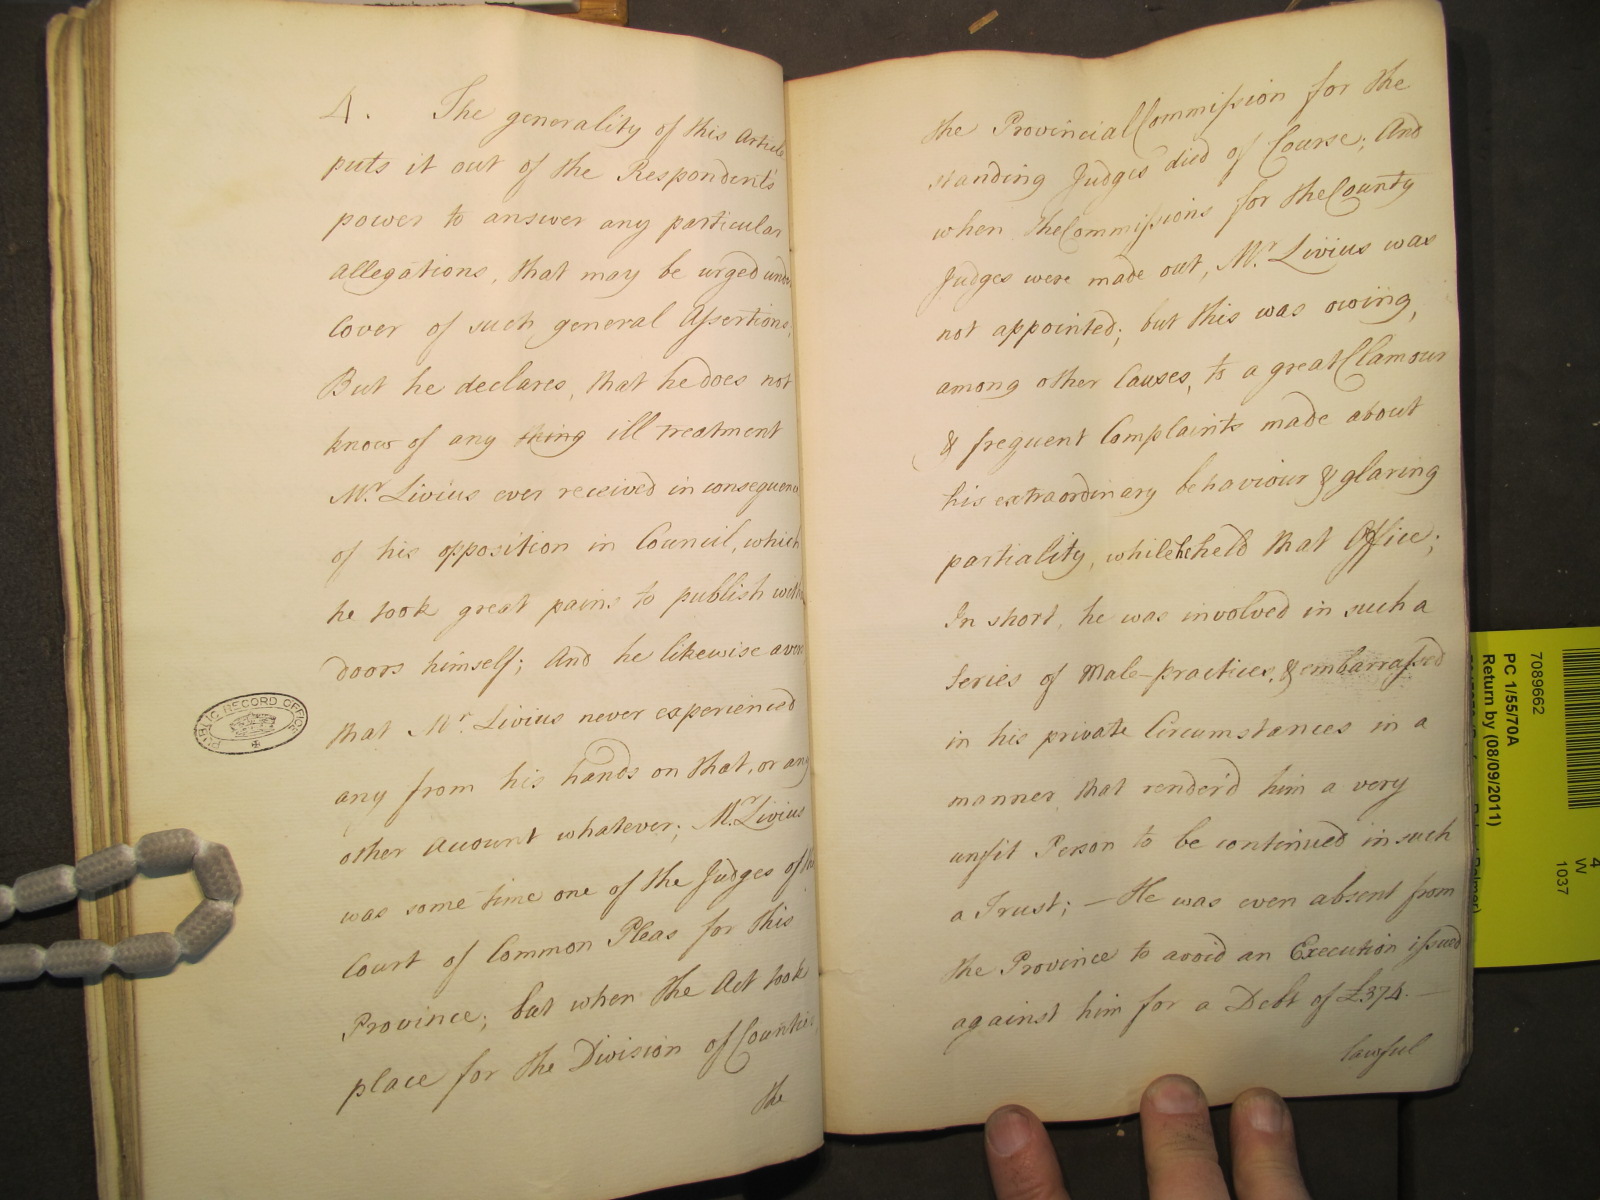 4. The generality of this Article
puts it out of the Respondent's
power to answer any particular
allegations, that may be urged under
Cover of such general Assertions;
But he declares, that he does not
know of any thing ill treatment
Mr. Livius ever received in consequence
of his opposition in Council, which
he took great pains to publish with
doors himself; And he likewise avers
that Mr. Livius never experienced
any from his hands on that, or any
other Account whatever; Mr. Livius
was some time one of the Judges of the
Court of Common Pleas for this
Province; but when the Act took
place for the Division of Counties
the
PUBLIC RECORD OFFICE
the Provincial Commission for the
standing Judges died of Course; And
when the Commissions for the County
Judges were made out, Mr. Livius was
not appointed; but this was owing,
among other Causes, to a great Clamour
& frequent Complaints made about
his extraordinary behaviour & glaring
partiality, while he held that Office;
In short, he was involved in such a
Series of Male-practices, & embarrassed
in his private Circumstances in a
manner that render'd him a very
unfit Person to be continued in such
a Trust; — He was even absent from
the Province to avoid an Execution issued
against him for a Debt of £374. —
lawful
7089662
PC 1/55/70A
Return by (08/09/2011)
4
W
1037